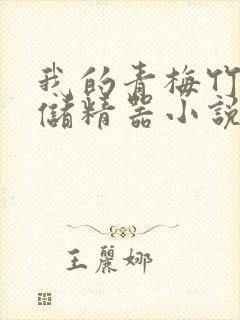 我的青梅竹
儲精器小說
王麗娜